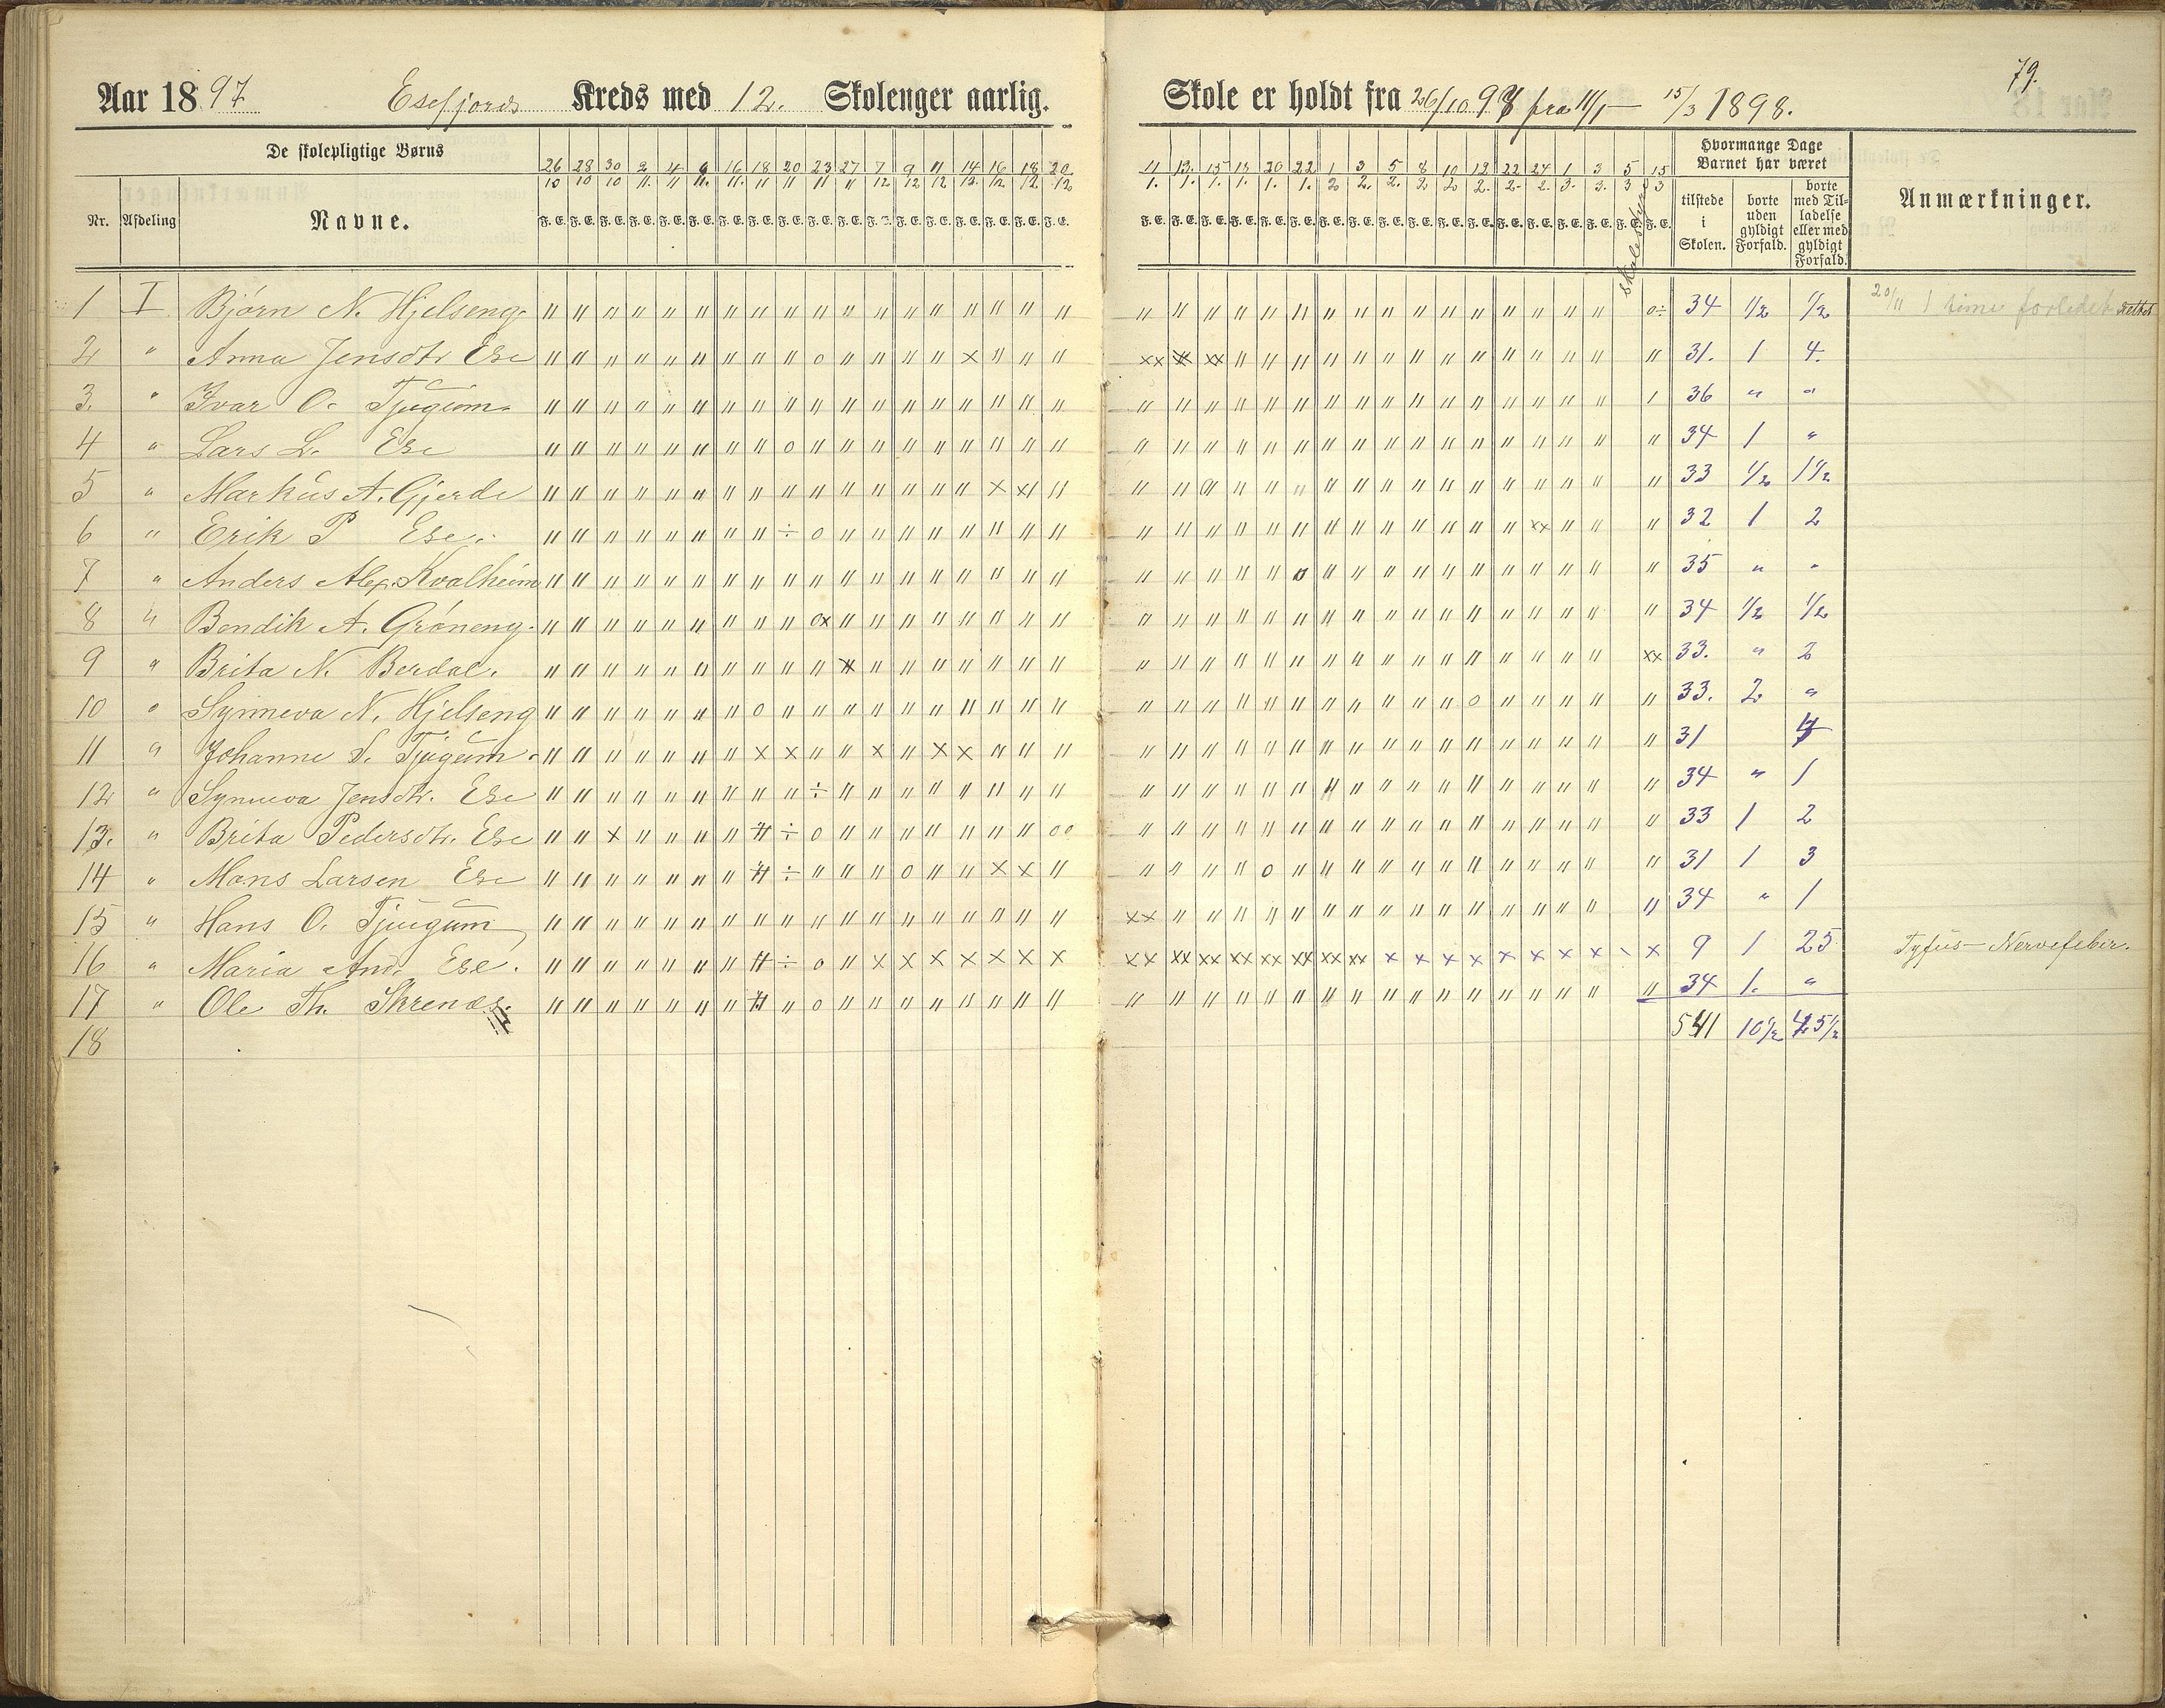 79.
Aar 1897 Esefjords Kreds med 12. Skolenger aarlig. Skole er holdt fra 26/10 97 fra 11/1 — 15/3 1898.
De skolepligtige Børns
Hvormange Dage Barnet har været
Nr. Afdeling Navne.
26/10 28/10 30/10 2/11. 4/11 9/11. 16/11. 18/11 20/11 23/11 27/11 7/12 9/12 11/12 14/12. 16/12 18/12. 20/12
11/1. 13/1. 15/1. 18/1. 20/1. 22/1. 1/2 3/2. 5/2. 8/2 10/2 12/2. 22/2. 24/2. 1/3. 3/3. 5/3 15/3
F. E. F. E. F. E. F. E. F. E. F. E. F. E. F. E. F. E. F. E. F. E. F. E. F. E. F. E. F. E. F. E. F. E. F. E.
F. E. F. E. F. E. F. E. F. E. F. E. F. E. F. E. F. E. F. E. F. E. F. E. F. E. F. E. F. E. F. E. F. E. F. E.
tilstede i Skolen.
borte uden gyldigt Forfald.
borte med Tilladelse eller med gyldigt Forfald.
Anmærkninger.
1 I Bjørn N. Hjelseng. 34 1/2 1/2 20/11 1 time forledet
2 " Anna Jensdtr Ese 31. 1 4.
3. " Ivar O. Tjugum. 36 " "
4 " Lars L. Ese 34 1 "
5 " Markus A. Gjerde 33 1/2 1 1/2
6 " Erik P Ese. 32 1 2
7 " Anders Alex. Kvalheim 35 " "
8 " Bendik A. Grøneng. 34 1/2 1/2
9 " Brita N. Berdal. 33. " 2
10 " Synneva N. Hjelseng 33. 2 "
11 " Johanne S. Tjugum. 31 4
12 " Synneva Jensdtr. Ese 34 " 1
13. " Brita Pedersdtr. Ese 33 1 2
14 " Mons Larsen Ese 31 1 3
15 " Hans O. Tjugum 34 " 1
16 " Maria And. Ese. 9 1 25 Tyfus — Nervefeber.
17 " Ole Th. Skrenes. 34 1. "
18 541 10 1/2 45 1/2